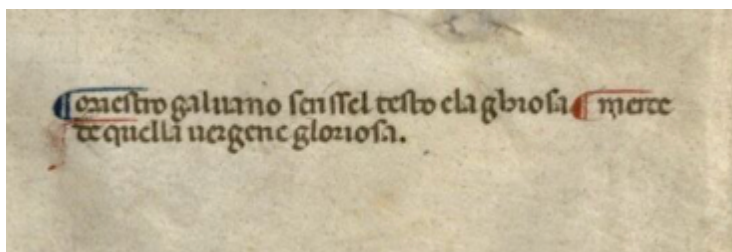 ¶ Maestro galuano scrissel testo ela ghiosa ¶ merce
de quella uergene gloriosa.